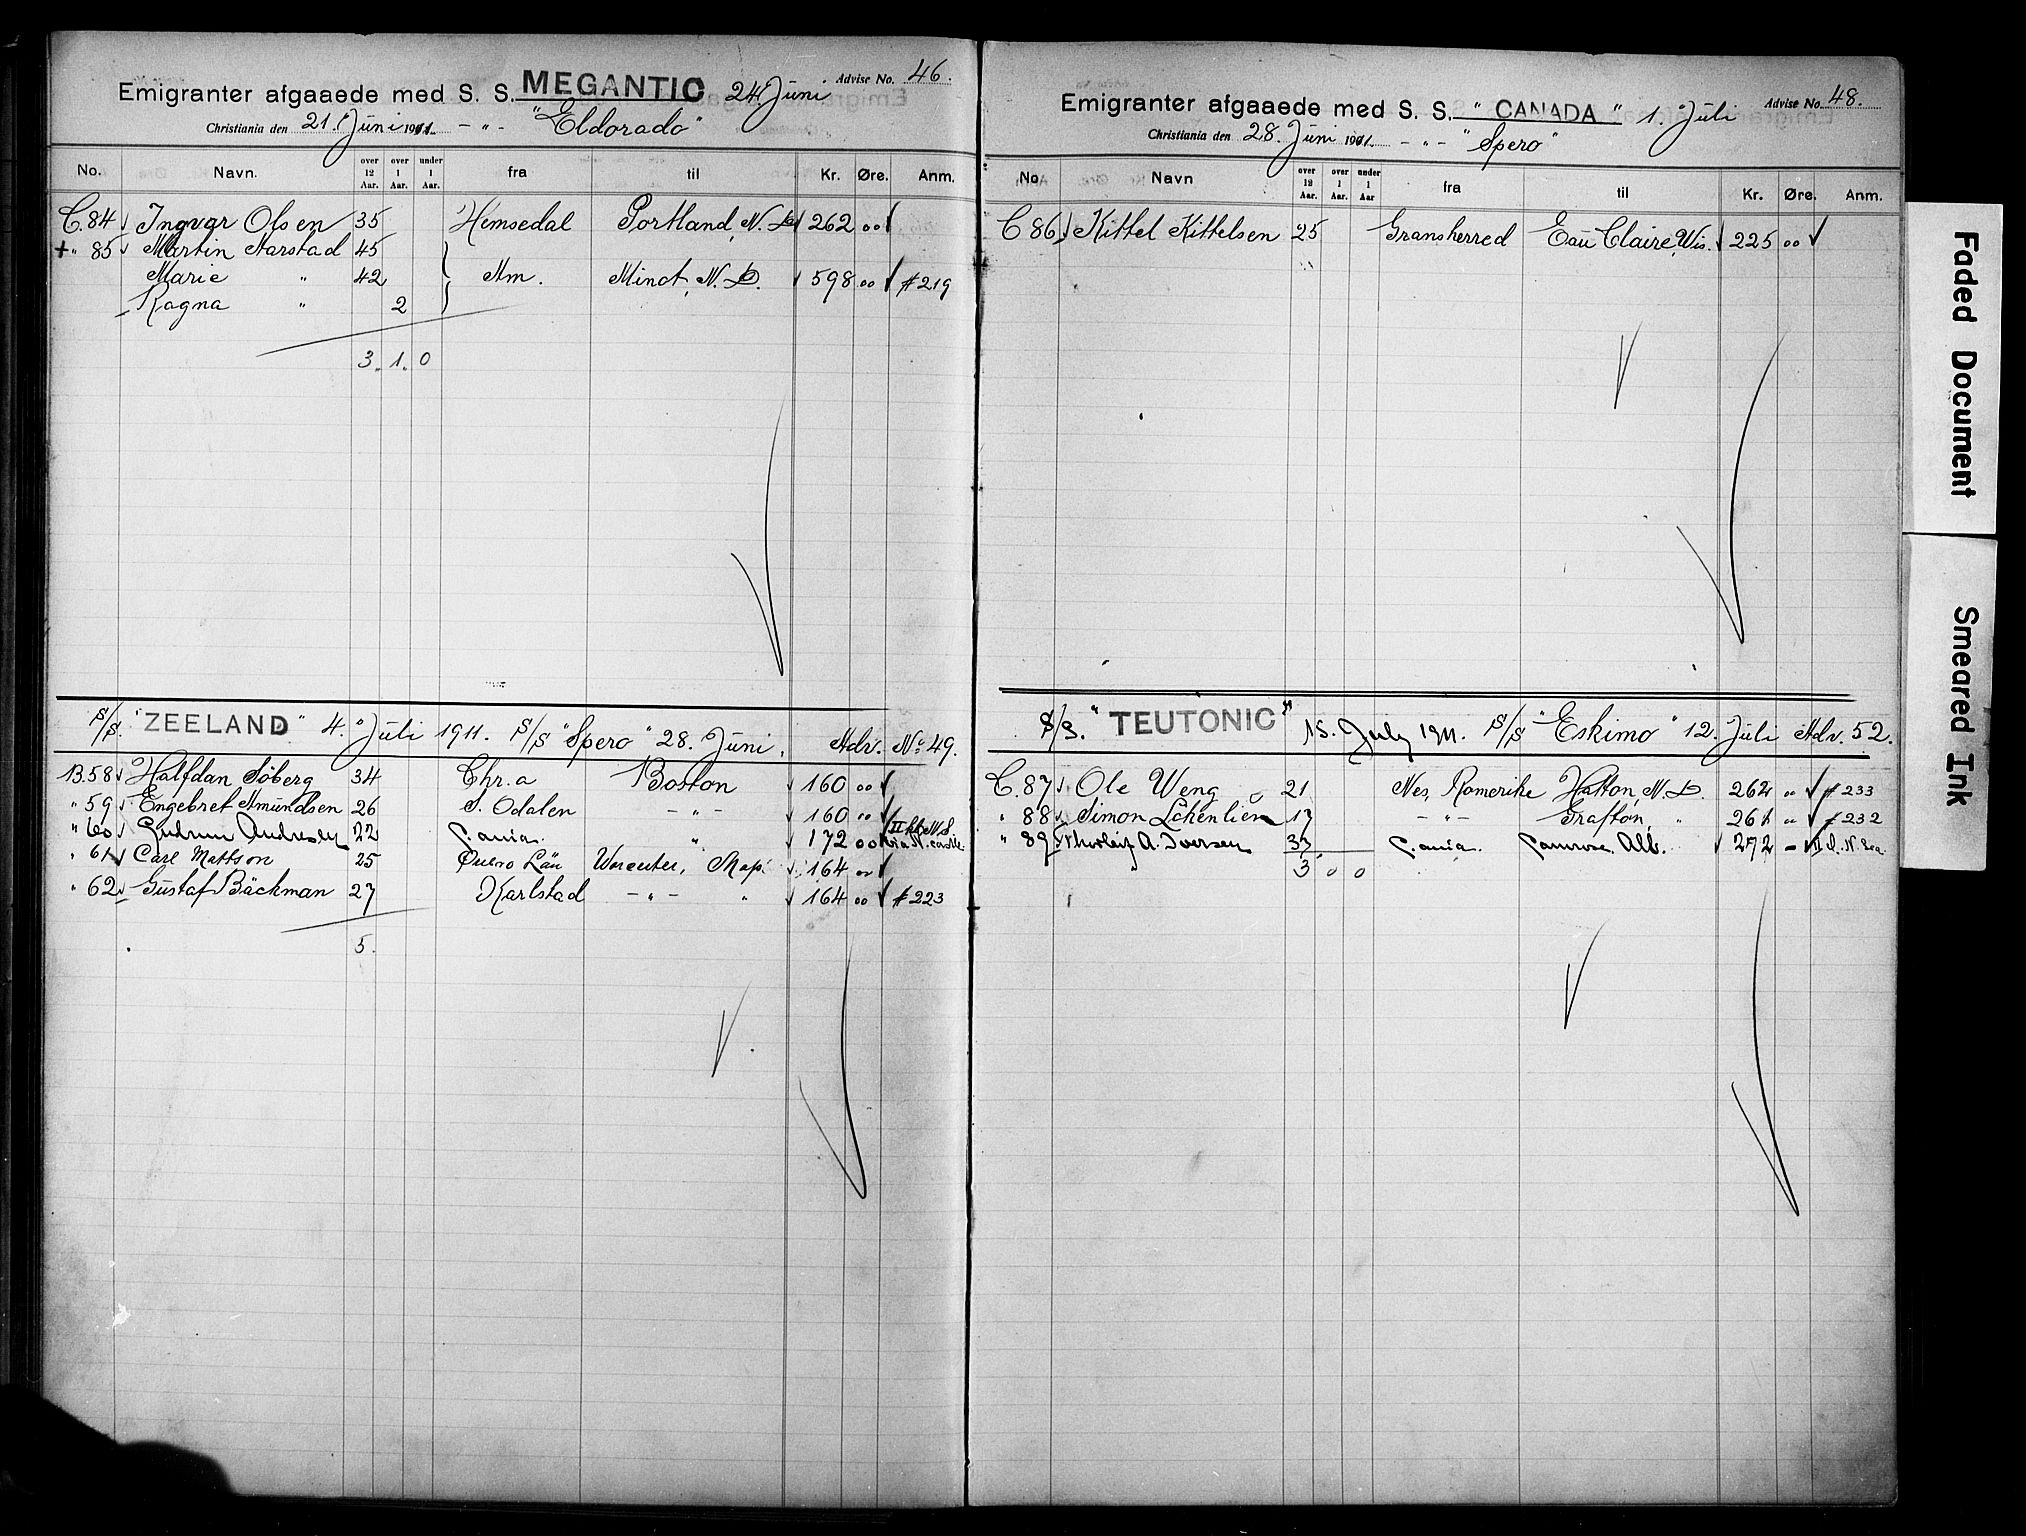 Emigranter afgaaede med S. S. MEGANTIC 24 Juni Advise No. 46.
Christiania den 21. Juni 1911. - " - "Eldorado"
No. Navn. over 12 Aar. over 1 Aar. under 1 Aar. fra til Kr. Øre. Anm.
C. 84 Ingvar Olsen 35 Hemsedal Portland, N. 262 00
+ " 85 Martin Aarstad 45
Marie " 42 Am. Minot, N. D. 598 00 #219
Ragna " 2
3. 1. 0
S/S. "ZEELAND" 4. Juli 1911. S/S "Spero" 28. Juni. Adv. No 49.
B.58 Halfdan Söberg 34 Chr.a Boston 160 00
" 59 Engebret Amundsen 26 S. Odalen - " - 160 "
" 60 Gudrun Andresen 22 " 172 00 II kl. N.S.
" 61 Carl Mattson 25 Örebro Län Worcester, Mass. 164 00
" 62 Gustaf Bäckman 27 Karlstad - " - " 164 00 #223
5.
Emigranter afgaaede med S. S. "CANADA" 1. Juli Advise No. 48.
Christiania den 28. Juni 1911. - " - "Spero"
No Navn over 12 Aar. over 1 Aar. under 1 Aar fra til Kr. Øre. Anm.
C 86 Kittel Kittelsen 25 Gransherred Eau Claire, Wis. 225 00
S/S. "TEUTONIC" 15. July 1911. S/S "Eskimo" 12. Juli Adv. 52.
C. 87 Ole Weng 21 Nes, Romerike Hatton, N. D. 262 " #233
" 88 Simon 17 - " - Grafton, " 261 " #232
" 89 Thorleif A. Iversen 33 Camrose Alb. 272 -
3 0 0
Faded Document
Smeared Ink